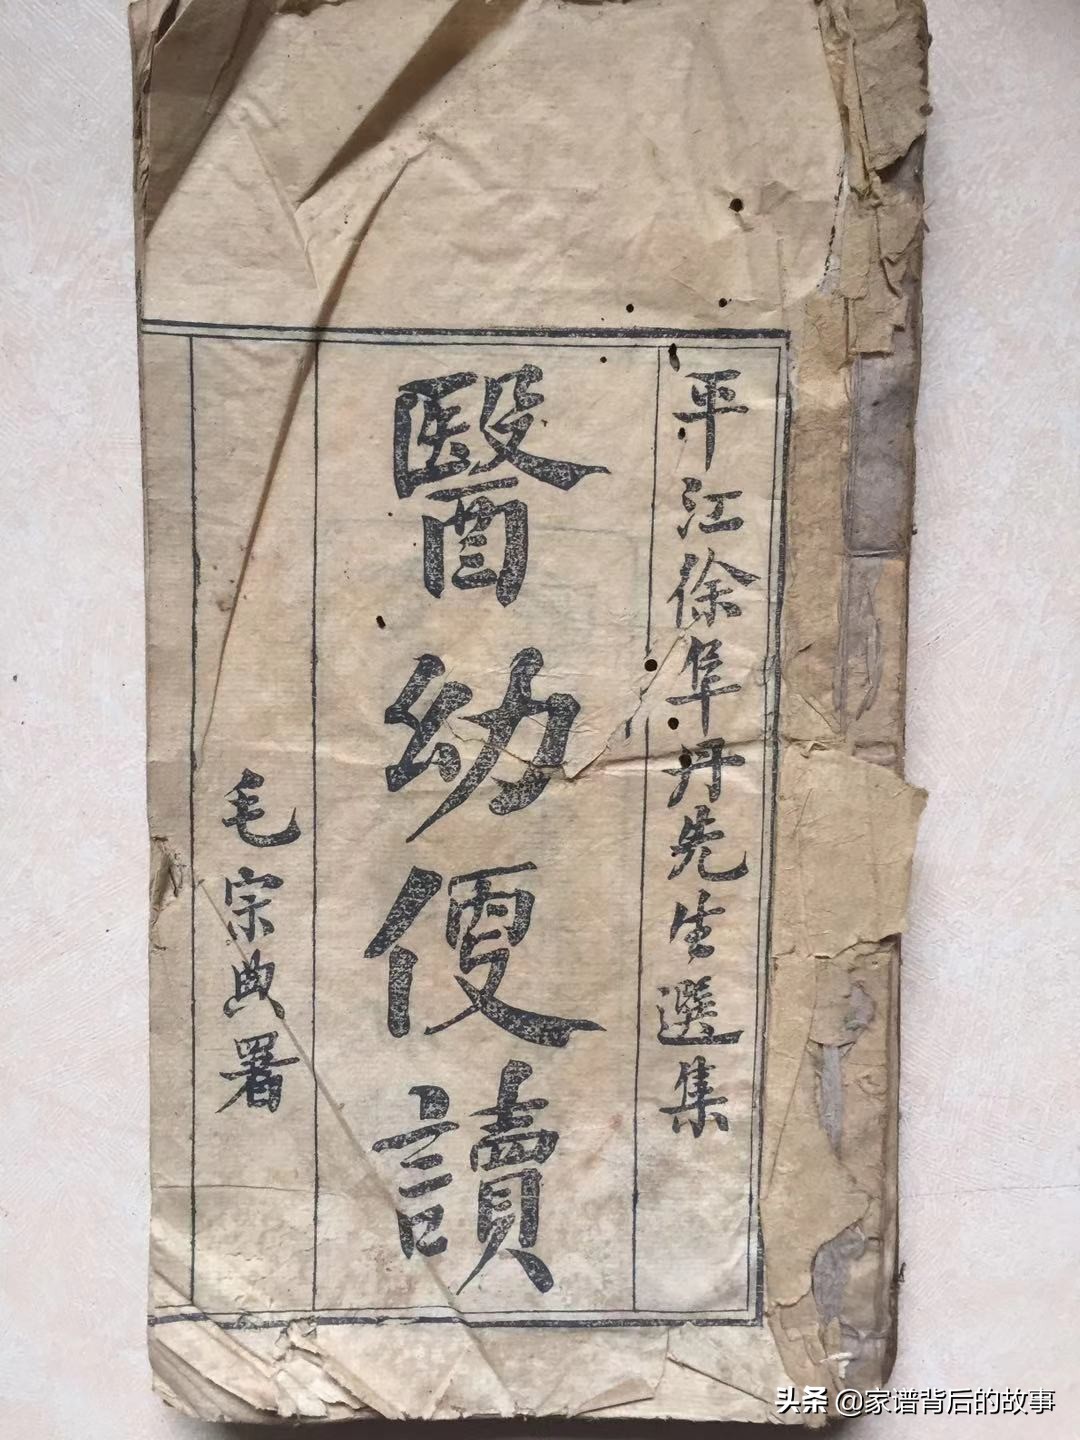 平江徐阜丹先生選集
醫幼便讀
毛宗典署
头条 @家谱背后的故事